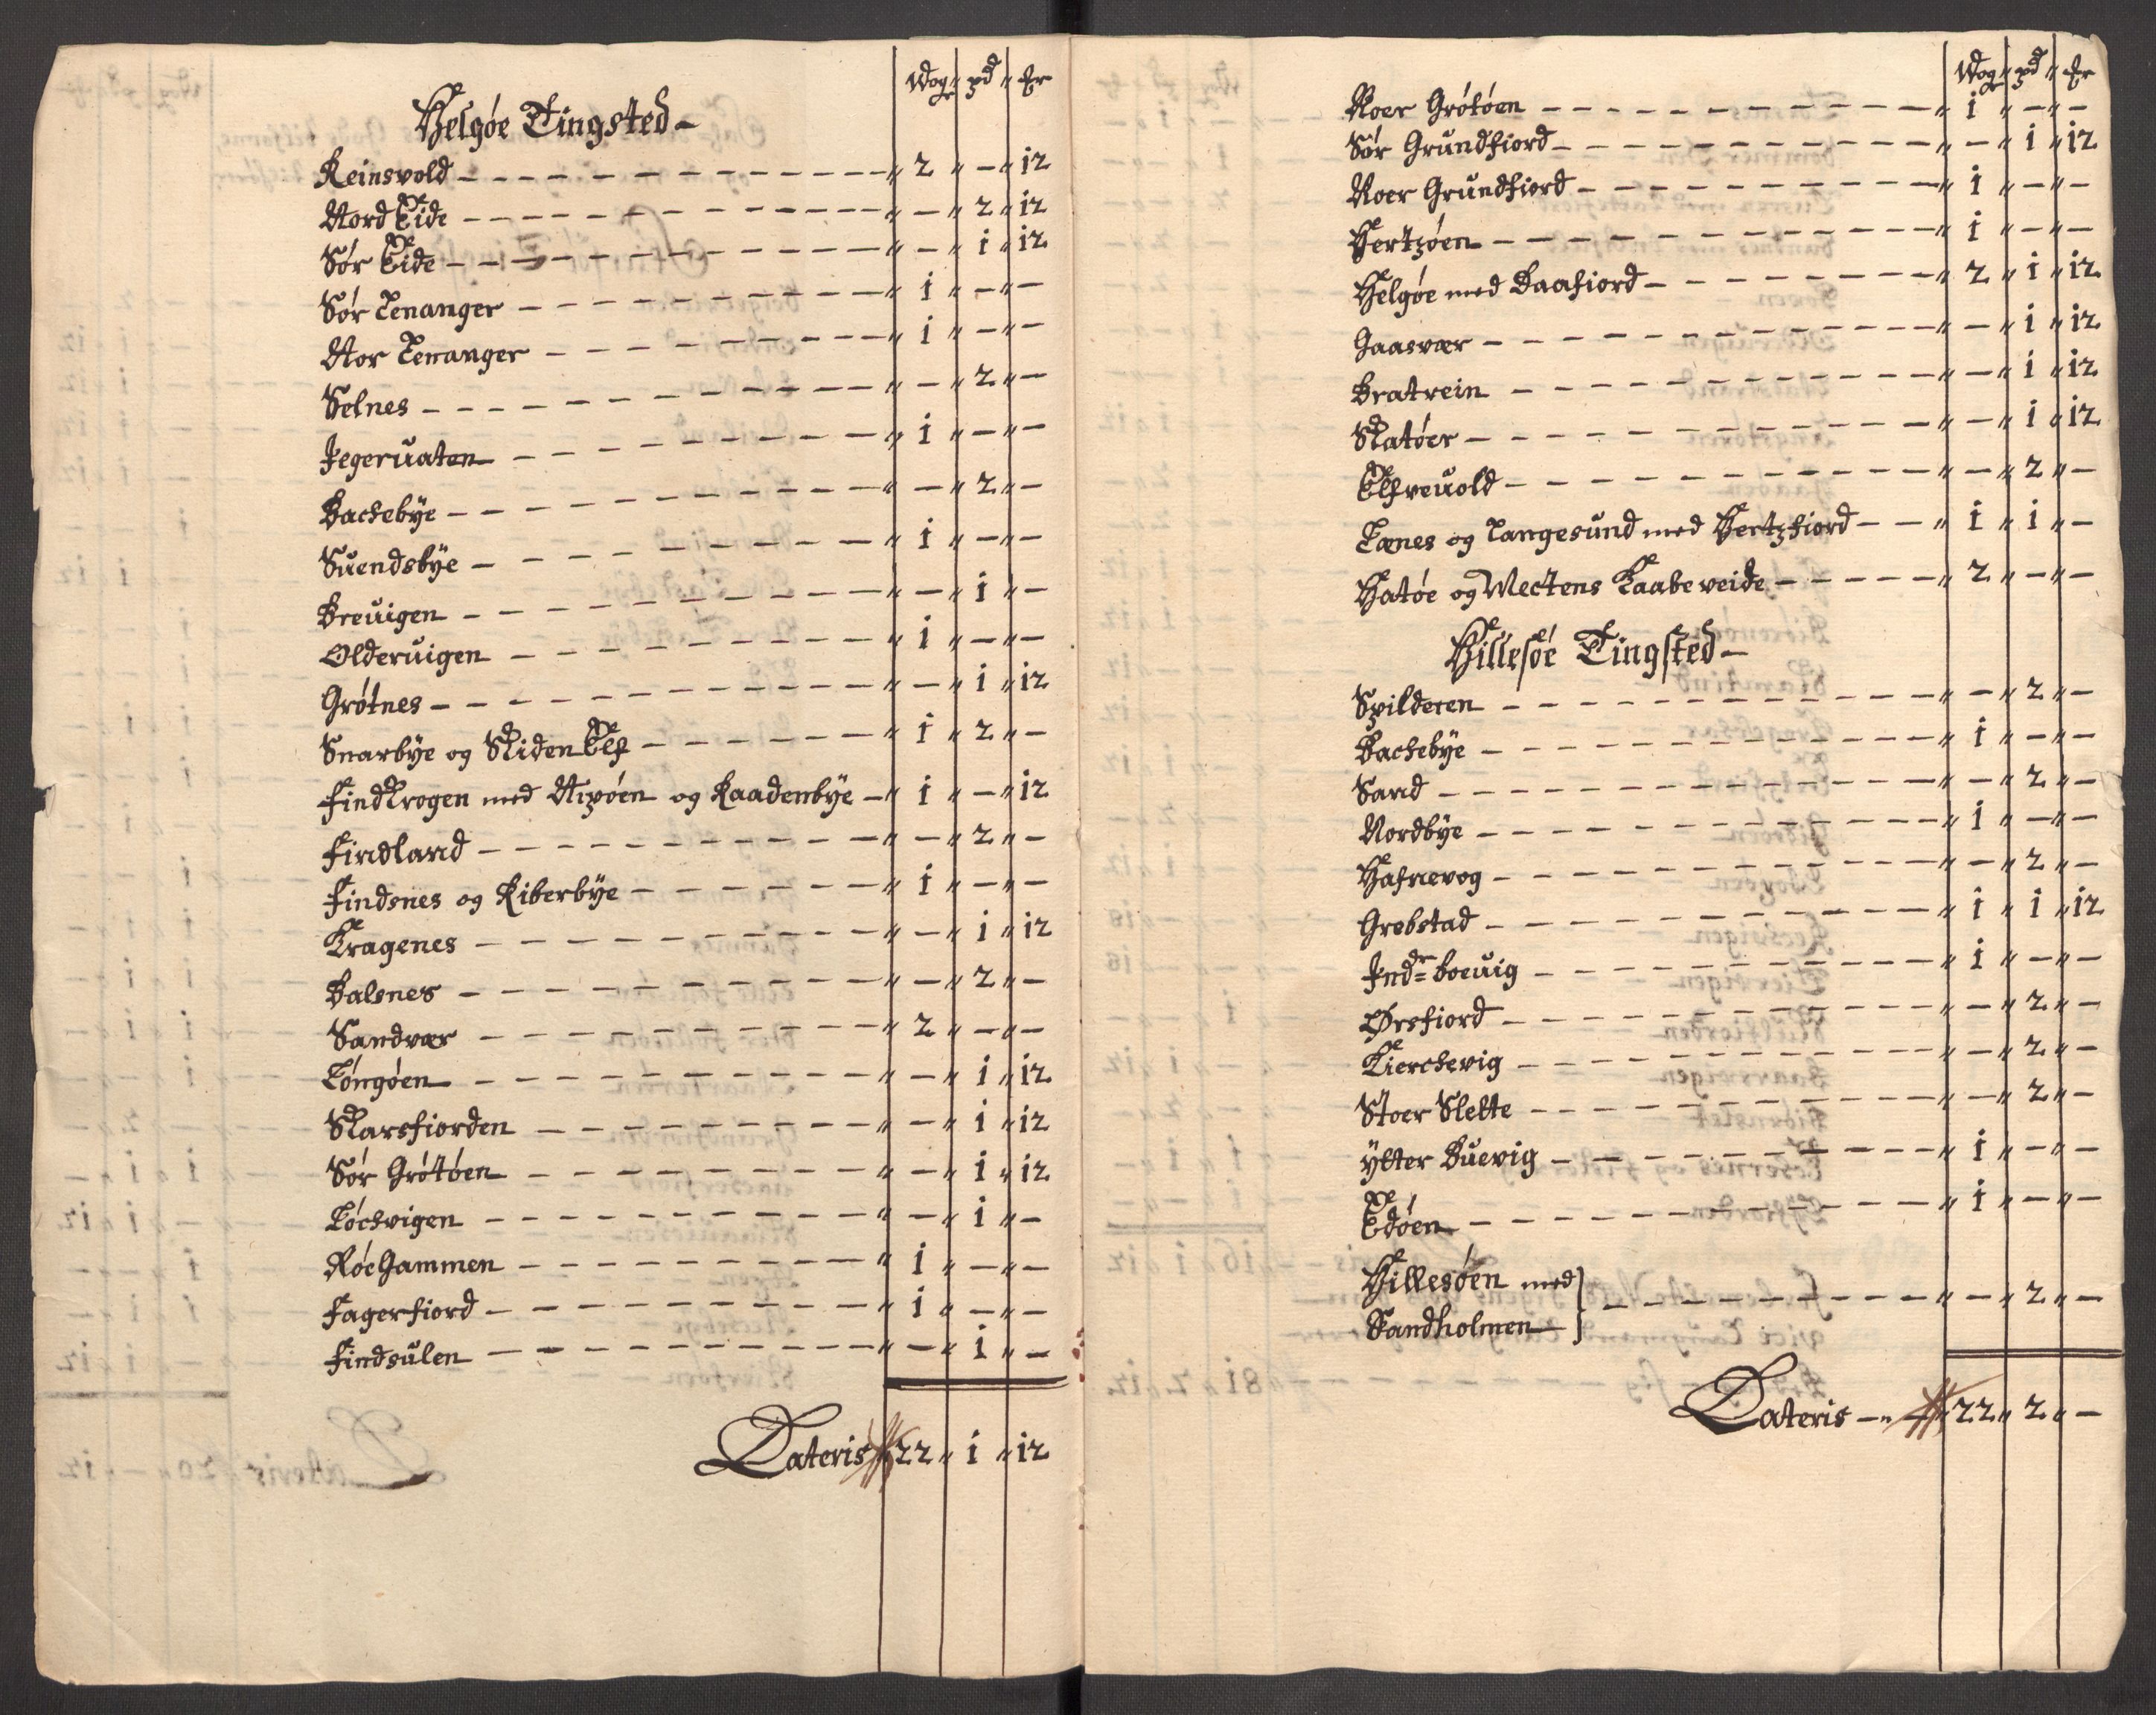 Wog pd Er
Helgøe Tingsted
Reinsvold — 2 — 12
Nord Eide — — 2 12
Sør Eide — — 1 12
Sør Lenanger — 1 — —
Nor Lenanger — 1 — —
Selnes — — 2 —
Jegeruaten — 1 — —
Bachebÿe — — 2 —
Suendsbÿe — 1 — —
Breuigen — — 1 —
Olderuigen — 1 — —
Grøtnes — — 1 12
Snarbÿe og Skiden Elf — 1 2 —
Findkrogen med Nipøen og Raadenbÿe — 1 — 12
Findland — — 2 —
Findsnes og Riberbÿe — 1 — —
Kragenes — — 1 12
Balsnes — — 2 —
Sandvær — 2 — —
Løngøen — — 1 12
Skarsfiorden — — 1 12
Sør Grøtøen — — 1 12
Løchvigen — — 1 —
Røegammen — 1 — —
Fagerfiord — 1 — —
Findsulen — — 1 —
Lateris 22 1 12
Wog pd Er
Noer Grøtøen — 1 — —
Sør Grundfiord — — 1 12
Noer Grundfiord — 1 — —
Hertzøen — 1 — —
Helgøe med Baafiord — 2 1 12
Gaasvær — — 1 12
Bratrein — — 1 12
Skatøer — — 1 12
Elfveuold — — 2 —
Lanes og Langesund med Hertzfiord — 1 1 —
Hatøe og Mectens Kaabe veide — 2 — —
Hillesøe Tingsted
Spilderen — — 2 —
Bachebÿe — 1 — —
Sand — — 2 —
Nordbÿe — 1 — —
Hafnevog — — 2 —
Grebstad — 1 1 12
Indr= boeuig — 1 — —
Ørsfiord — — 2 —
Kierchevig — — 2 —
Stoer Slette — — 2 —
ÿtter Buevig — 1 — —
Edøen — 1 — —
Hillesøen med
Sandholmen — — 2 —
Lateris — 22 2 —